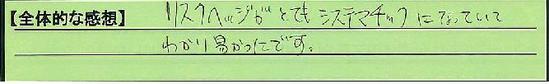 【全体的な感想】 リスクヘッジがとてもシステマチックになっていて
わかり易かったです。